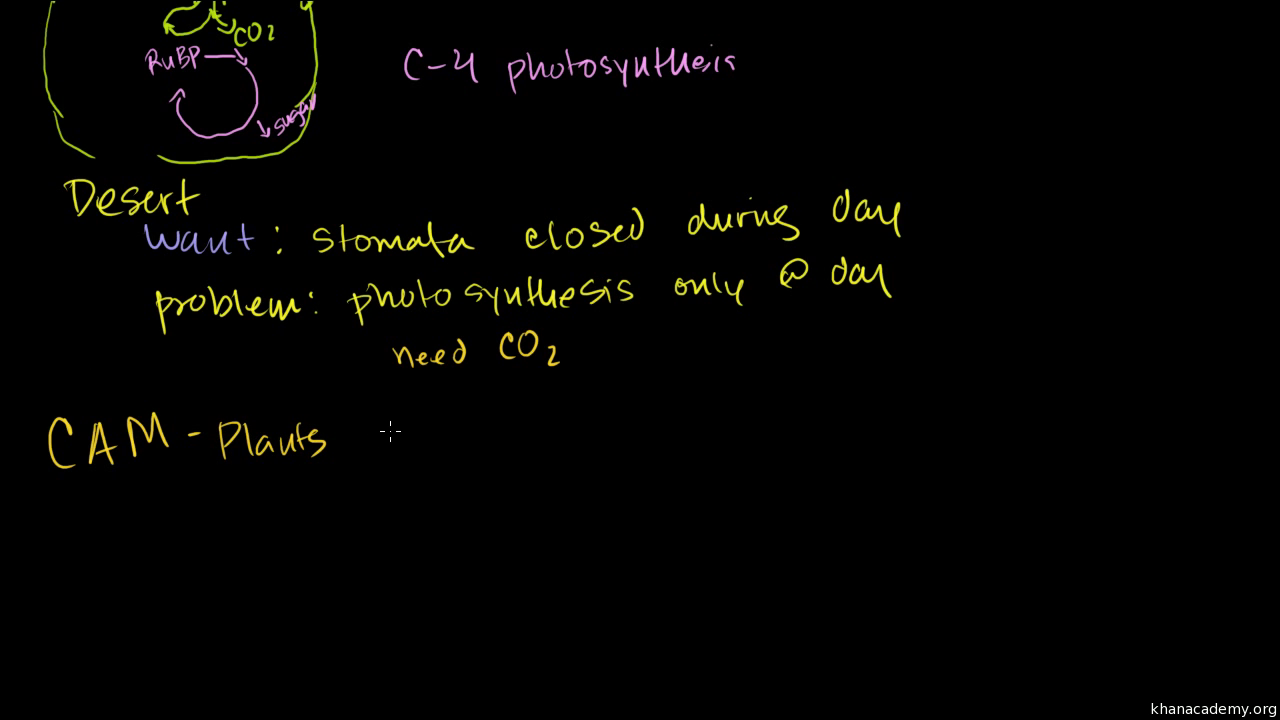 CO2
RuBP
sugar
C-4 photosynthesis
Desert
want: stomata closed during day
problem: photosynthesis only @ day
need CO2
CAM - Plants
khanacademy.org